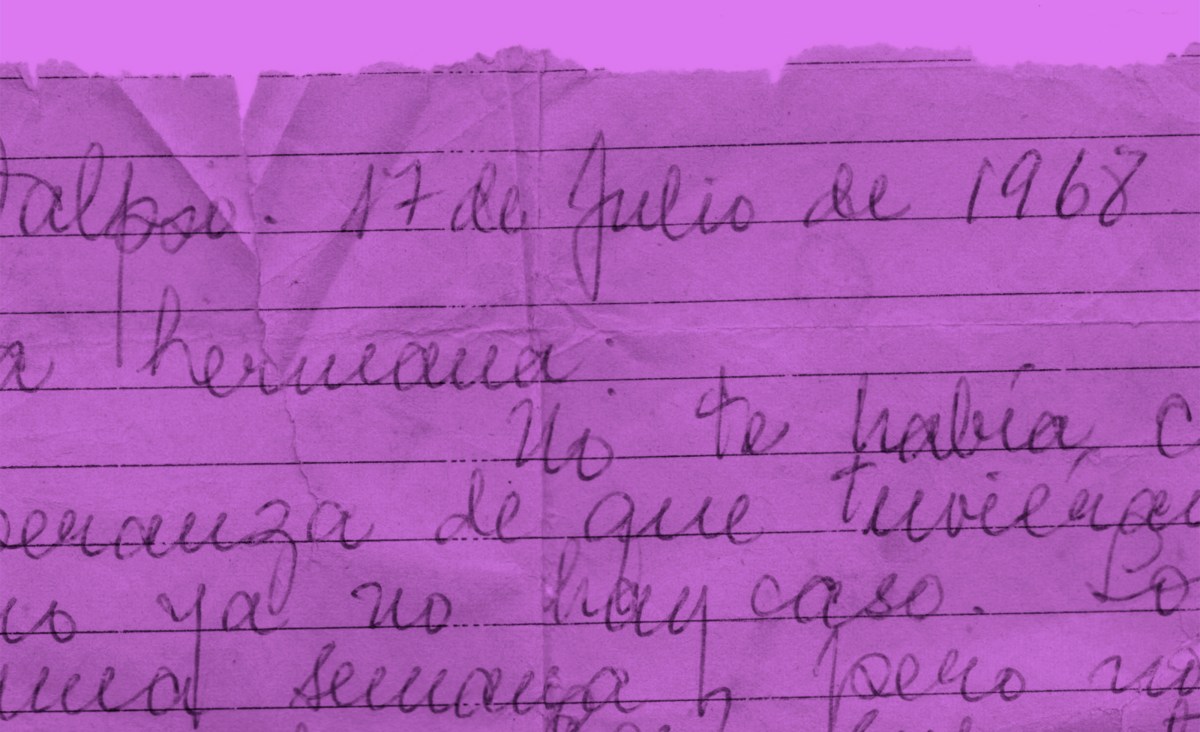 Valpso. 17 de Julio de 1968
a hermana:
No te había
peranza de que tuvieran
ya no hay caso. Lo
semana y pero